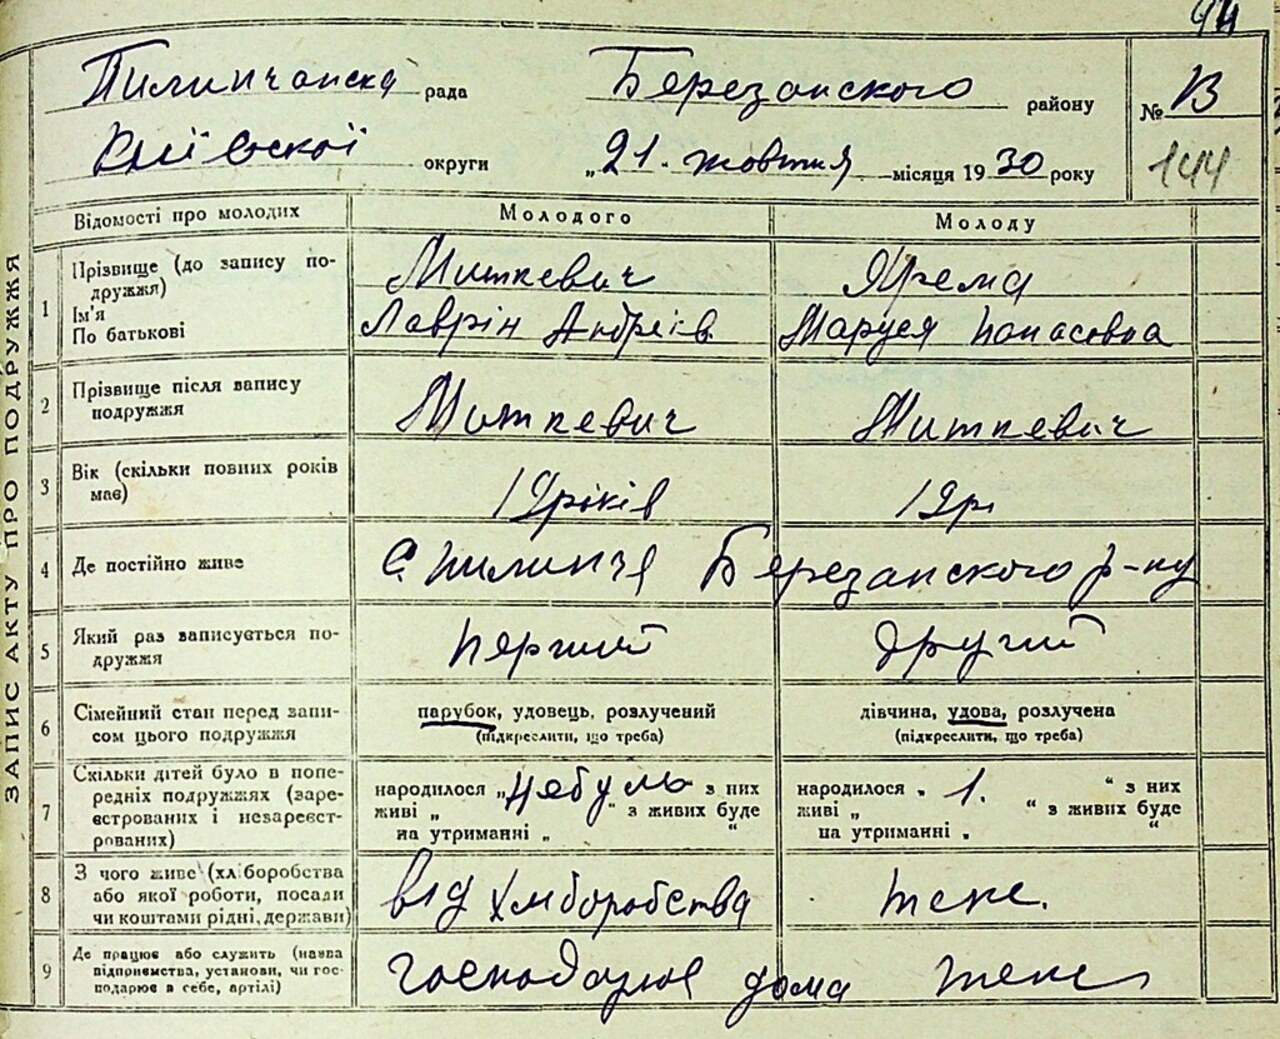 94
Пилипчанска рада Березанского району № 13
Київскої округи „21. жовтня місяця 1930 року 144
ЗАПИС АКТУ ПРО ПОДРУЖЖЯ
Відомості про молодих Молодого Молоду
1 Прізвище (до запису по- Миткевич Ярема
дружжя)
Ім'я Лаврін Андреів. Маруся Панасовна
По батькові
2 Прізвище після запису Миткевич Миткевич
подружжя
3 Вік (скільки повних років 19 років 19 р.
має)
4 Де постійно живе с. Пилипча Березанского р-ну
5 Який раз записується по- Перший другий
дружжя
6 Сімейний стан перед запи- парубок, удовець, розлучений дівчина, удова, розлучена
сом цього подружжя (підкреслити, що треба) (підкреслити, що треба)
7 Скільки дітей було в попе- народилося „небуло з них народилося „ 1. “ з них
редніх подружжях (заре- живі „ “ з живих буде живі „ “ з живих буде
єстрованих і незареєст- на утриманні „ “ на утриманні „ “
рованих)
8 З чого живе (хліборобства від Хліборобства теже.
або якої роботи, посади
чи коштами рідні, держави)
9 Де працює або служить (назва господарює дома теже
підприємства, установи, чи гос-
подарює в себе, артілі)